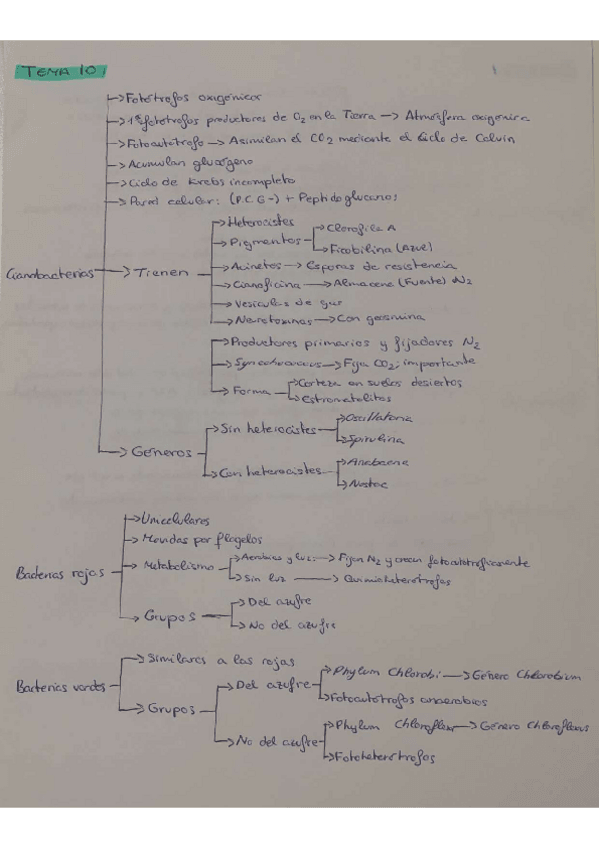 TEMA 10:
→ Fotótrofos oxigénicos
→ 1ᵒˢ fotótrofos productores de O2 en la Tierra → Atmósfera oxigénica
→ Fotoautótrofo → Asimilan el CO2 mediante el Ciclo de Calvin
→ Acumulan glucógeno
→ Ciclo de Krebs incompleto
→ Pared celular: (P.C.G-) + Peptidoglucanos
→ Heterocistes
→ Pigmentos → Clorofila A
→ Ficobilina (Azul)
Cianobacterias → Tienen → Acinetos → Esporas de resistencia
→ Cianoficina → Almacena (Fuente) N2
→ Vesículas de gas
→ Neurotoxinas → Con geosmina
→ Productores primarios y fijadores N2
→ Synechococcus → Fija CO2; importante
→ Forma → Corteza en suelos desiertos
→ Estromatolitos
→ Géneros → Sin heterocistes → Oscillatoria
→ Spirulina
→ Con heterocistes → Anabaena
→ Nostoc
→ Unicelulares
→ Movidas por flagelos
Bacterias rojas → Metabolismo → Aerobios y luz → Fijan N2 y crecen fotoautotróficamente
→ Sin luz → Quimioheterótrofos
→ Grupos → Del azufre
→ No del azufre
→ Similares a las rojas
Bacterias verdes → Grupos → Del azufre → Phylum Chlorobi → Género Chlorobium
→ Fotoautótrofos anaerobios
→ No del azufre → Phylum Chloroflexi → Género Chloroflexus
→ Fotoheterótrofos